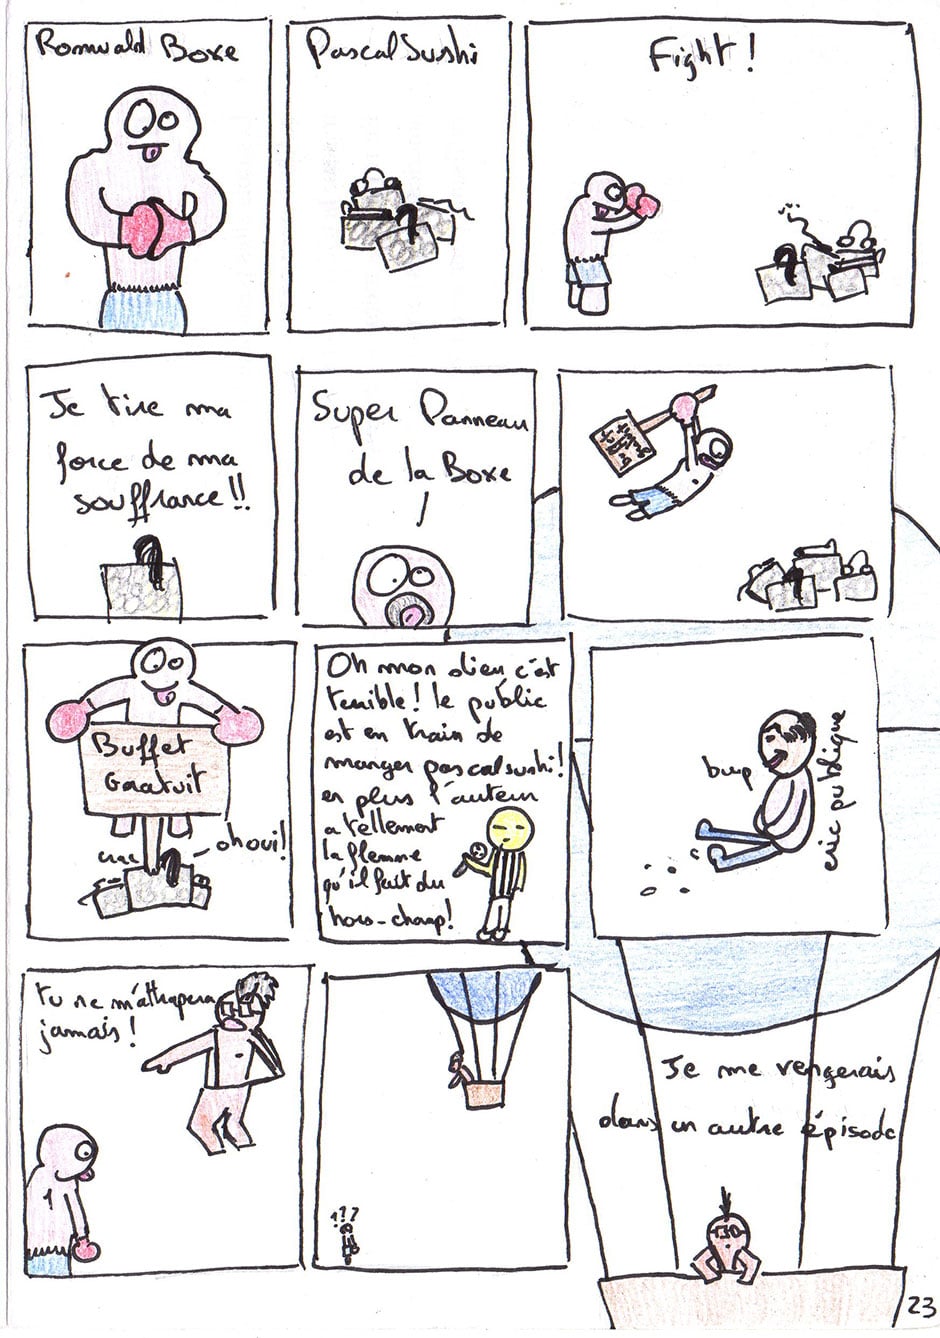 Romuald Boxe
Pascal Sushi
Fight !
Je tire ma
force de ma
souffrance !!
Super Panneau
de la Boxe
Buffet
Gratuit
crac
oh oui !
Oh mon dieu c'est
terrible ! le public
est en train de
manger pascal sushi !
en plus l'auteur
a tellement
la flemme
qu'il fait du
hors-champ !
burp
eric publique
tu ne m'attrapera
jamais !
1
!??
Je me vengerais
dans un autre épisode
23